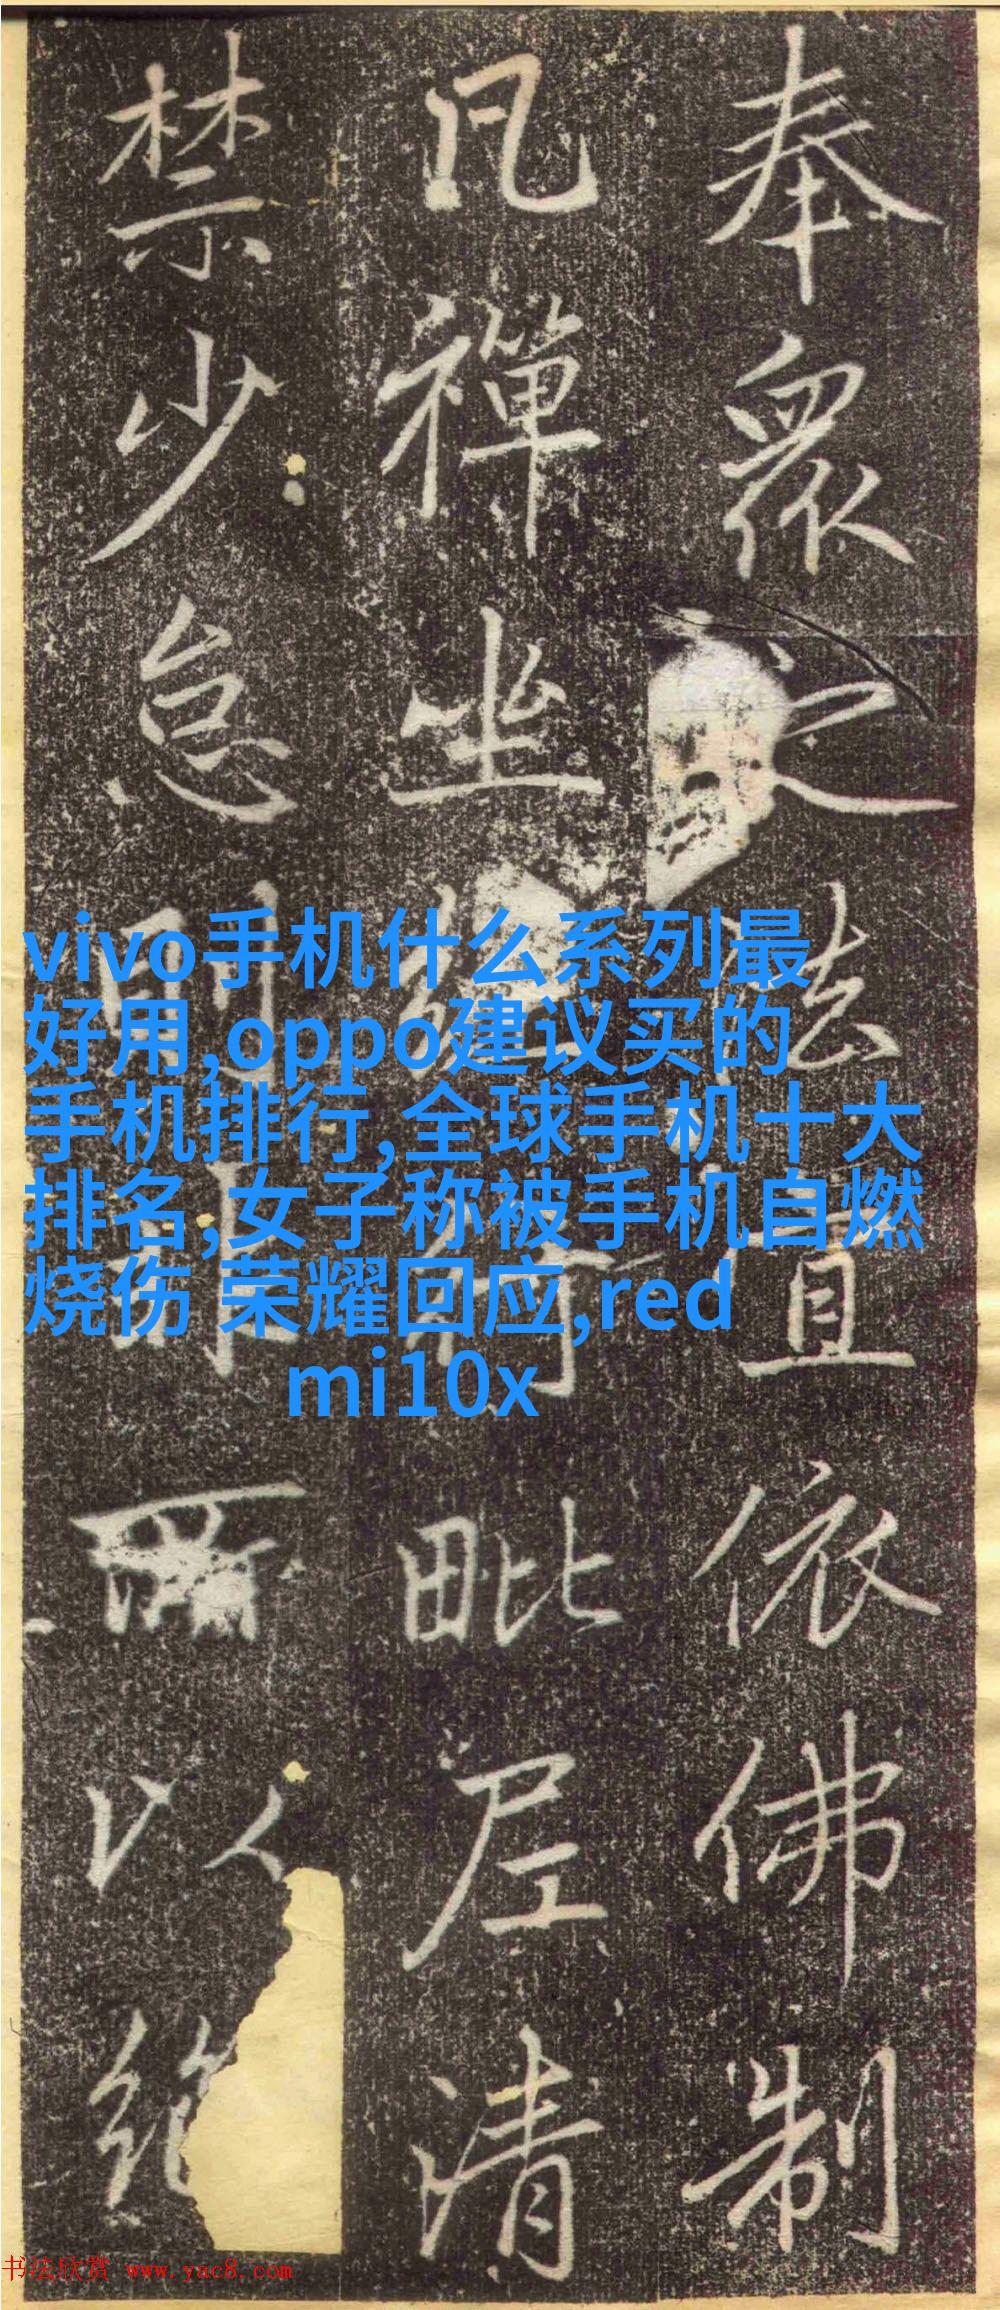 奉衆之宜依佛制
凡禪坐經行毗尼清
禁少怠則以絕
vivo手机什么系列最
好用,oppo建议买的
手机排行,全球手机十大
排名,女子称被手机自燃
烧伤 荣耀回应,red
mi10x
书法欣赏 www.yac8.com